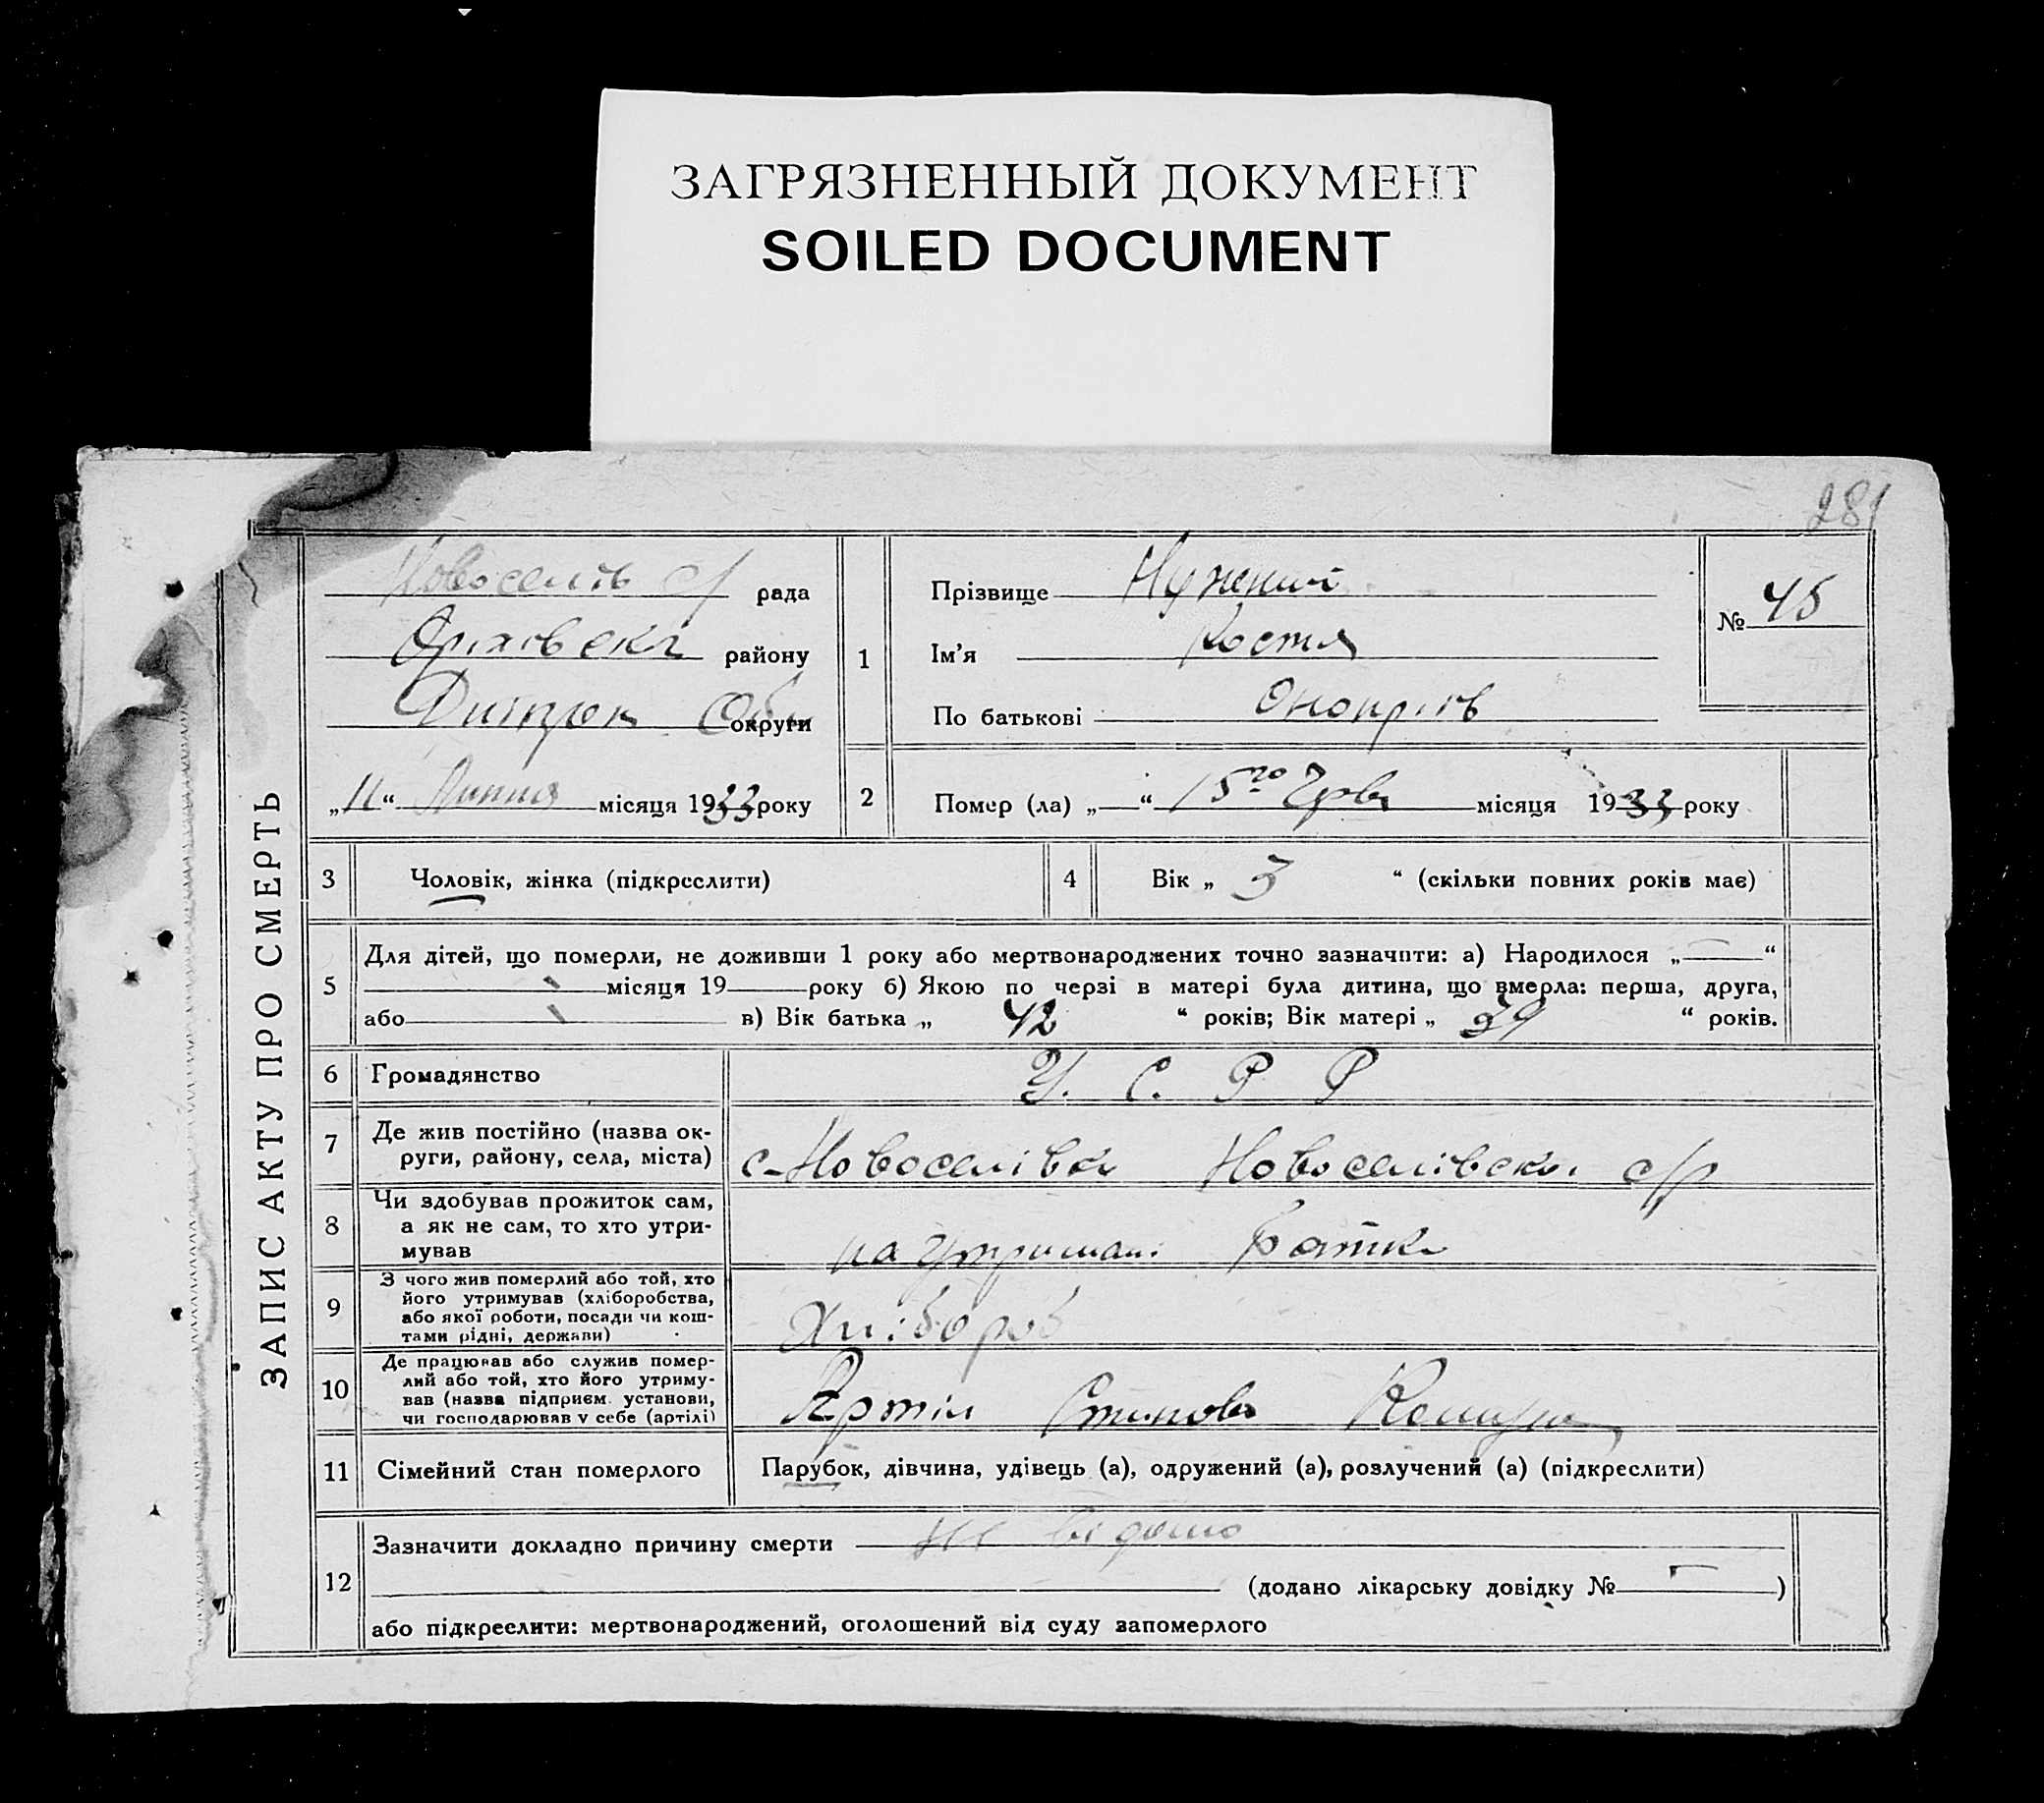 ЗАГРЯЗНЕННЫЙ ДОКУМЕНТ
SOILED DOCUMENT
281
ЗАПИС АКТУ ПРО СМЕРТЬ
Новоселів с/ рада
Оріхівськ району
Дніпроп Обл округи
„11“ Липня місяця 1933 року
1
Прізвище Нужний
Ім'я Костя
По батькові Онопрів
№ 45
2
Помер (ла) „—“ 15го Черв місяця 1933 року
3
Чоловік, жінка (підкреслити)
4
Вік „ 3 “ (скільки повних років має)
5
Для дітей, що померли, не доживши 1 року або мертвонароджених точно зазначити: а) Народилося „—“
місяця 19 року б) Якою по черзі в матері була дитина, що вмерла: перша, друга,
або в) Вік батька „ 42 “ років; Вік матері „ 39 “ років.
6
Громадянство У. С. Р Р
7
Де жив постійно (назва ок-
руги, району, села, міста)
с-Новоселівка Новоселівськ. с/р
8
Чи здобував прожиток сам,
а як не сам, то хто утри-
мував
на утримані батька
9
З чого жив померлий або той, хто
його утримував (хліборобства,
або якої роботи, посади чи кош-
тами рідні, держави)
Хлібороб
10
Де працював або служив помер-
лий або той, хто його утриму-
вав (назва підприєм. установи,
чи господарював у себе (артілі)
Артіль Степова Комуна
11
Сімейний стан померлого
Парубок, дівчина, удівець (а), одружений (а), розлучений (а) (підкреслити)
12
Зазначити докладно причину смерти не відомо
(додано лікарську довідку № — )
або підкреслити: мертвонароджений, оголошений від суду запомерлого